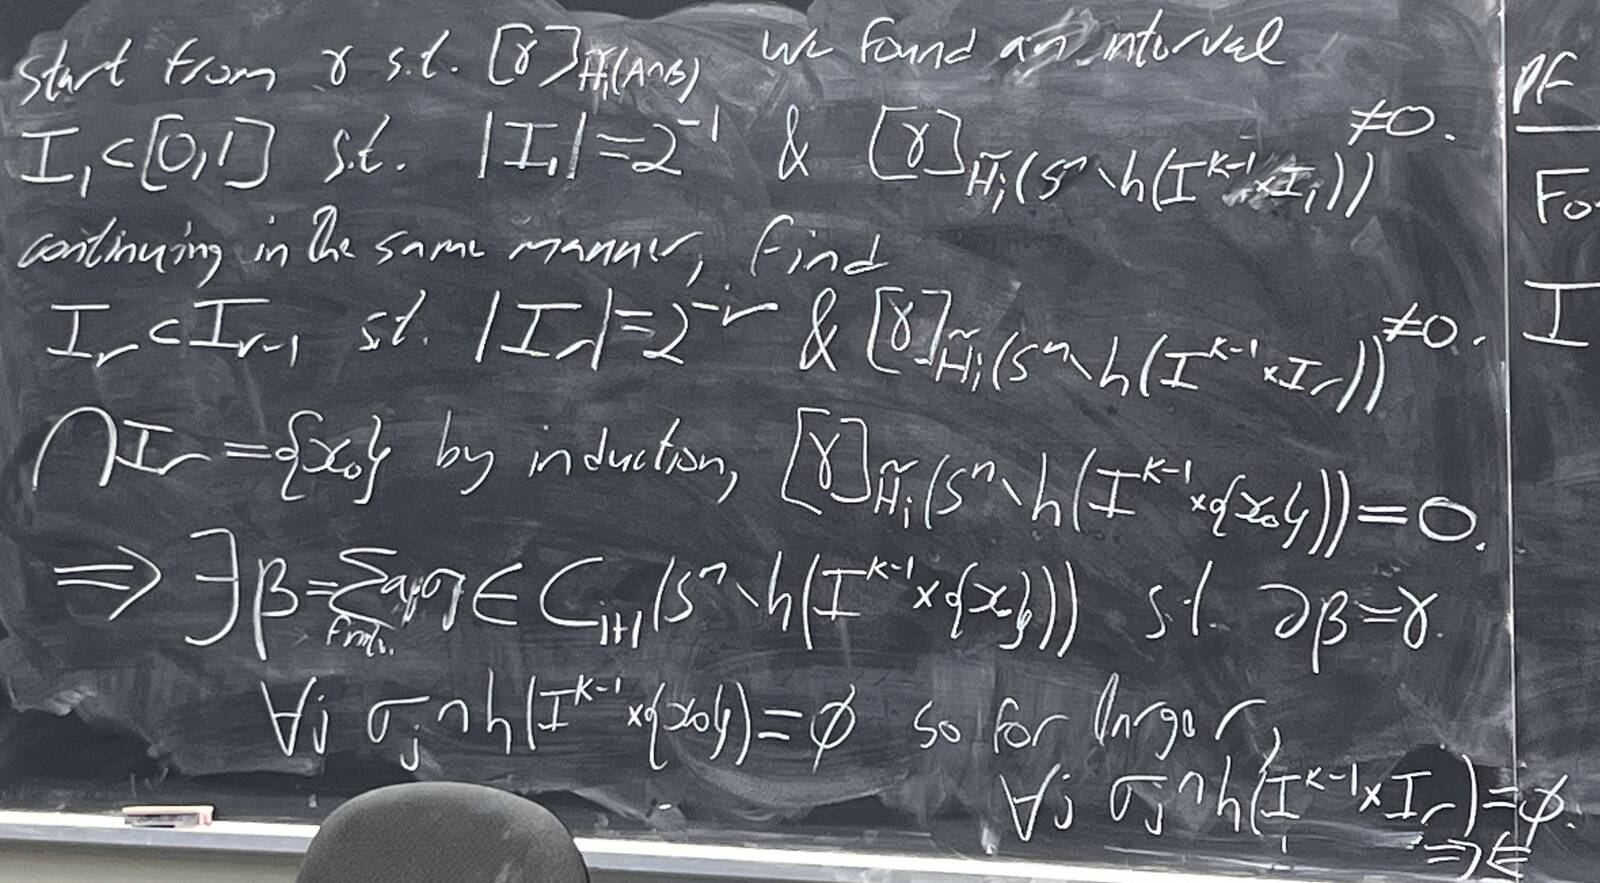 start from γ s.t. [γ]_{H̃_i(A∩B)} we found an interval
I_1 ⊂ [0,1] s.t. |I_1| = 2^{-1} & [γ]_{H̃_i(S^n∖h(I^{k-1}×I_1))} ≠0.
continuing in the same manner, find
I_r ⊂ I_{r-1} s.t. |I_r| = 2^{-r} & [γ]_{H̃_i(S^n∖h(I^{k-1}×I_r))} ≠0.
∩I_r = {x_0} by induction, [γ]_{H̃_i(S^n∖h(I^{k-1}×{x_0}))} = 0.
⟹ ∃β = Σ_{finite} a_jσ_j ∈ C_{i+1}(S^n∖h(I^{k-1}×{x_0})) s.t. ∂β=γ.
∀j σ_j∩h(I^{k-1}×{x_0})=∅ so for large r,
∀j σ_j∩h(I^{k-1}×I_r)=∅.
⇒⇐
PF
Fo
I